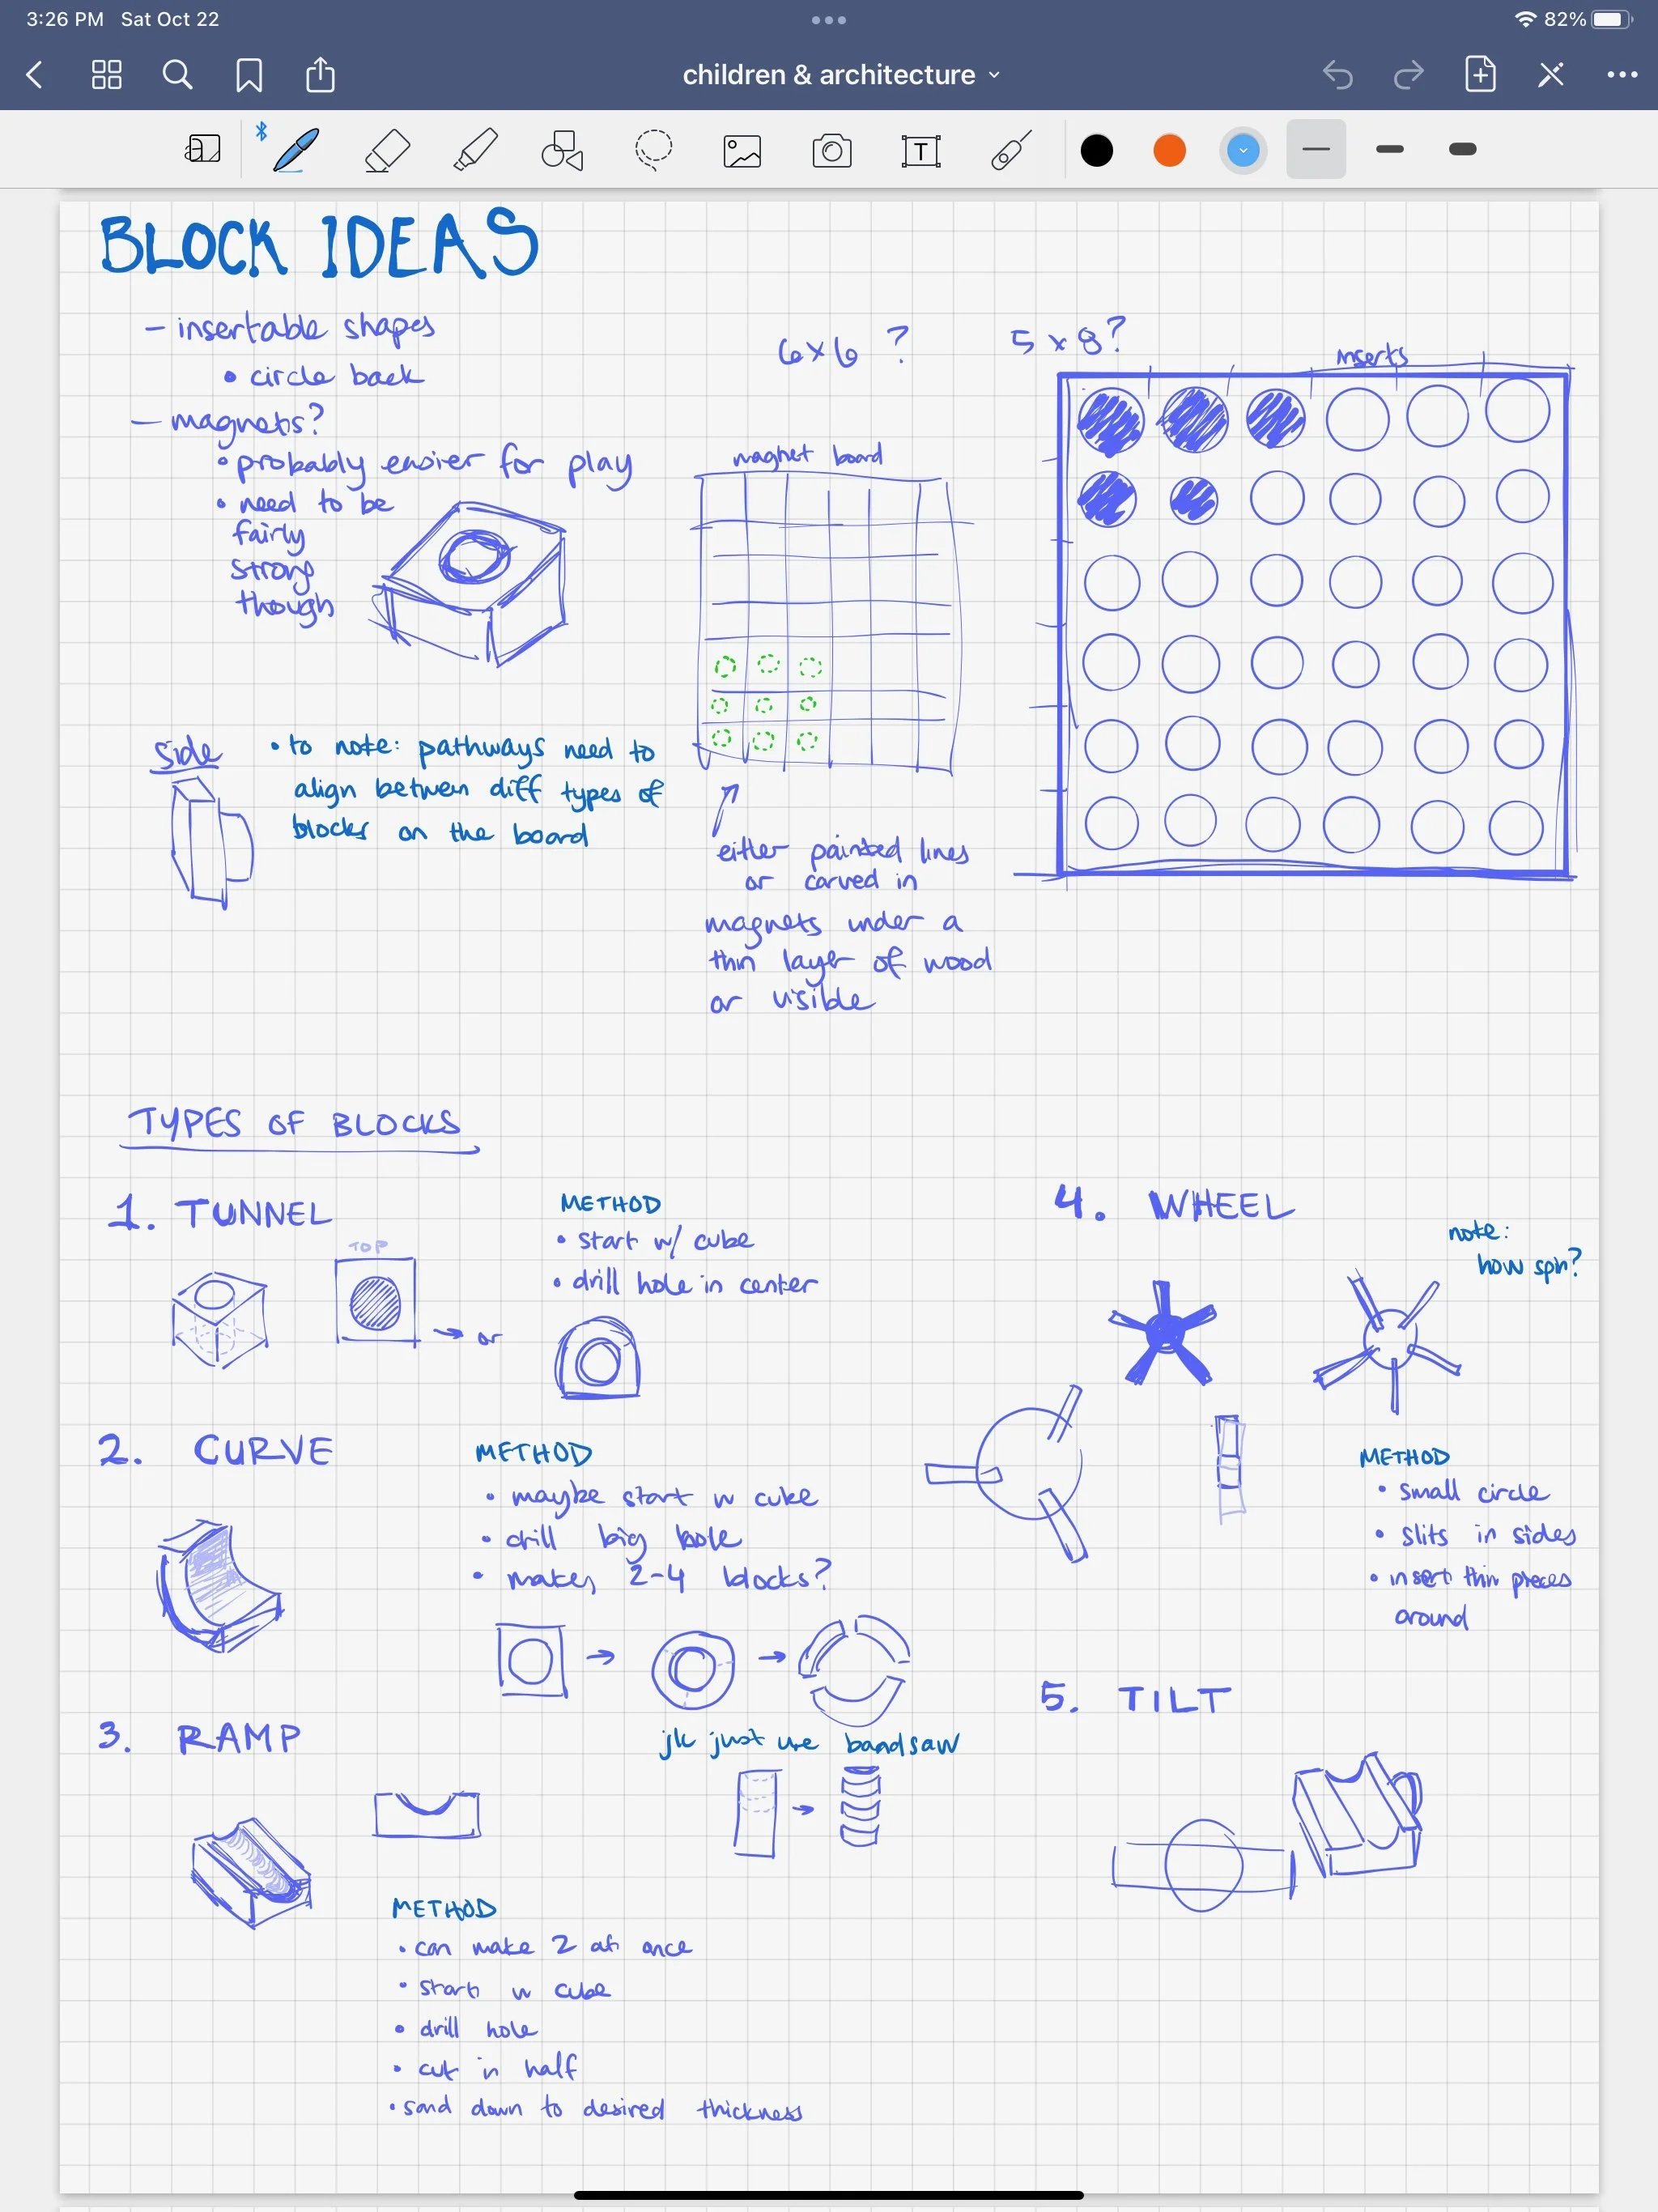 3:26 PM Sat Oct 22
82%
children & architecture
T
BLOCK IDEAS
- insertable shapes
• circle back
- magnets?
• probably easier for play
• need to be
fairly
strong
though
side
• to note: pathways need to
align between diff types of
blocks on the board
6x6 ?
magnet board
either painted lines
or carved in
magnets under a
thin layer of wood
or visible
5 x 8?
inserts
TYPES OF BLOCKS
1. TUNNEL
TOP
→ or
METHOD
• start w/ cube
• drill hole in center
2. CURVE
METHOD
• maybe start w cube
• drill big hole
• makes 2-4 blocks?
jk just use bandsaw
3. RAMP
METHOD
• can make 2 at once
• start w cube
• drill hole
• cut in half
• sand down to desired thickness
4. WHEEL
note:
how spin?
METHOD
• small circle
• slits in sides
• insert thin pieces
around
5. TILT